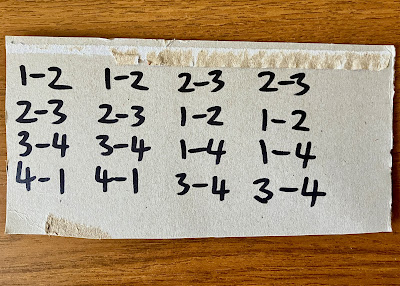 1-2 1-2 2-3 2-3
2-3 2-3 1-2 1-2
3-4 3-4 1-4 1-4
4-1 4-1 3-4 3-4